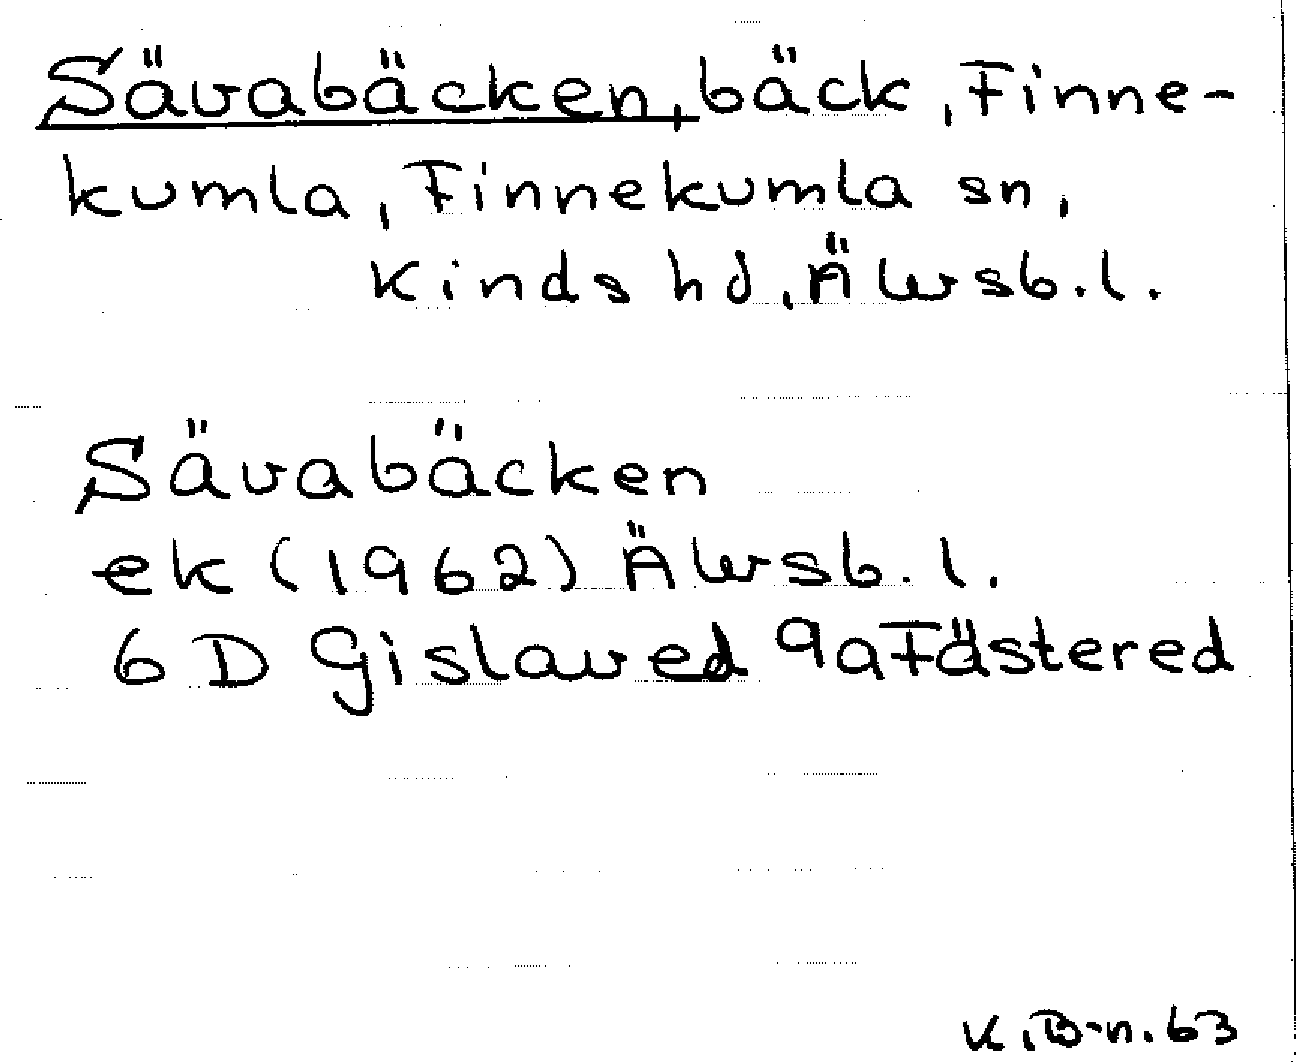 Sävabäcken, bäck, Finne-
kumla, Finnekumla sn,
Kinds hd, Älvsb. l.
Sävabäcken
ek (1962) Älvsb. l.
6 D Gislaved 9a Fästered
K.B-n. 63